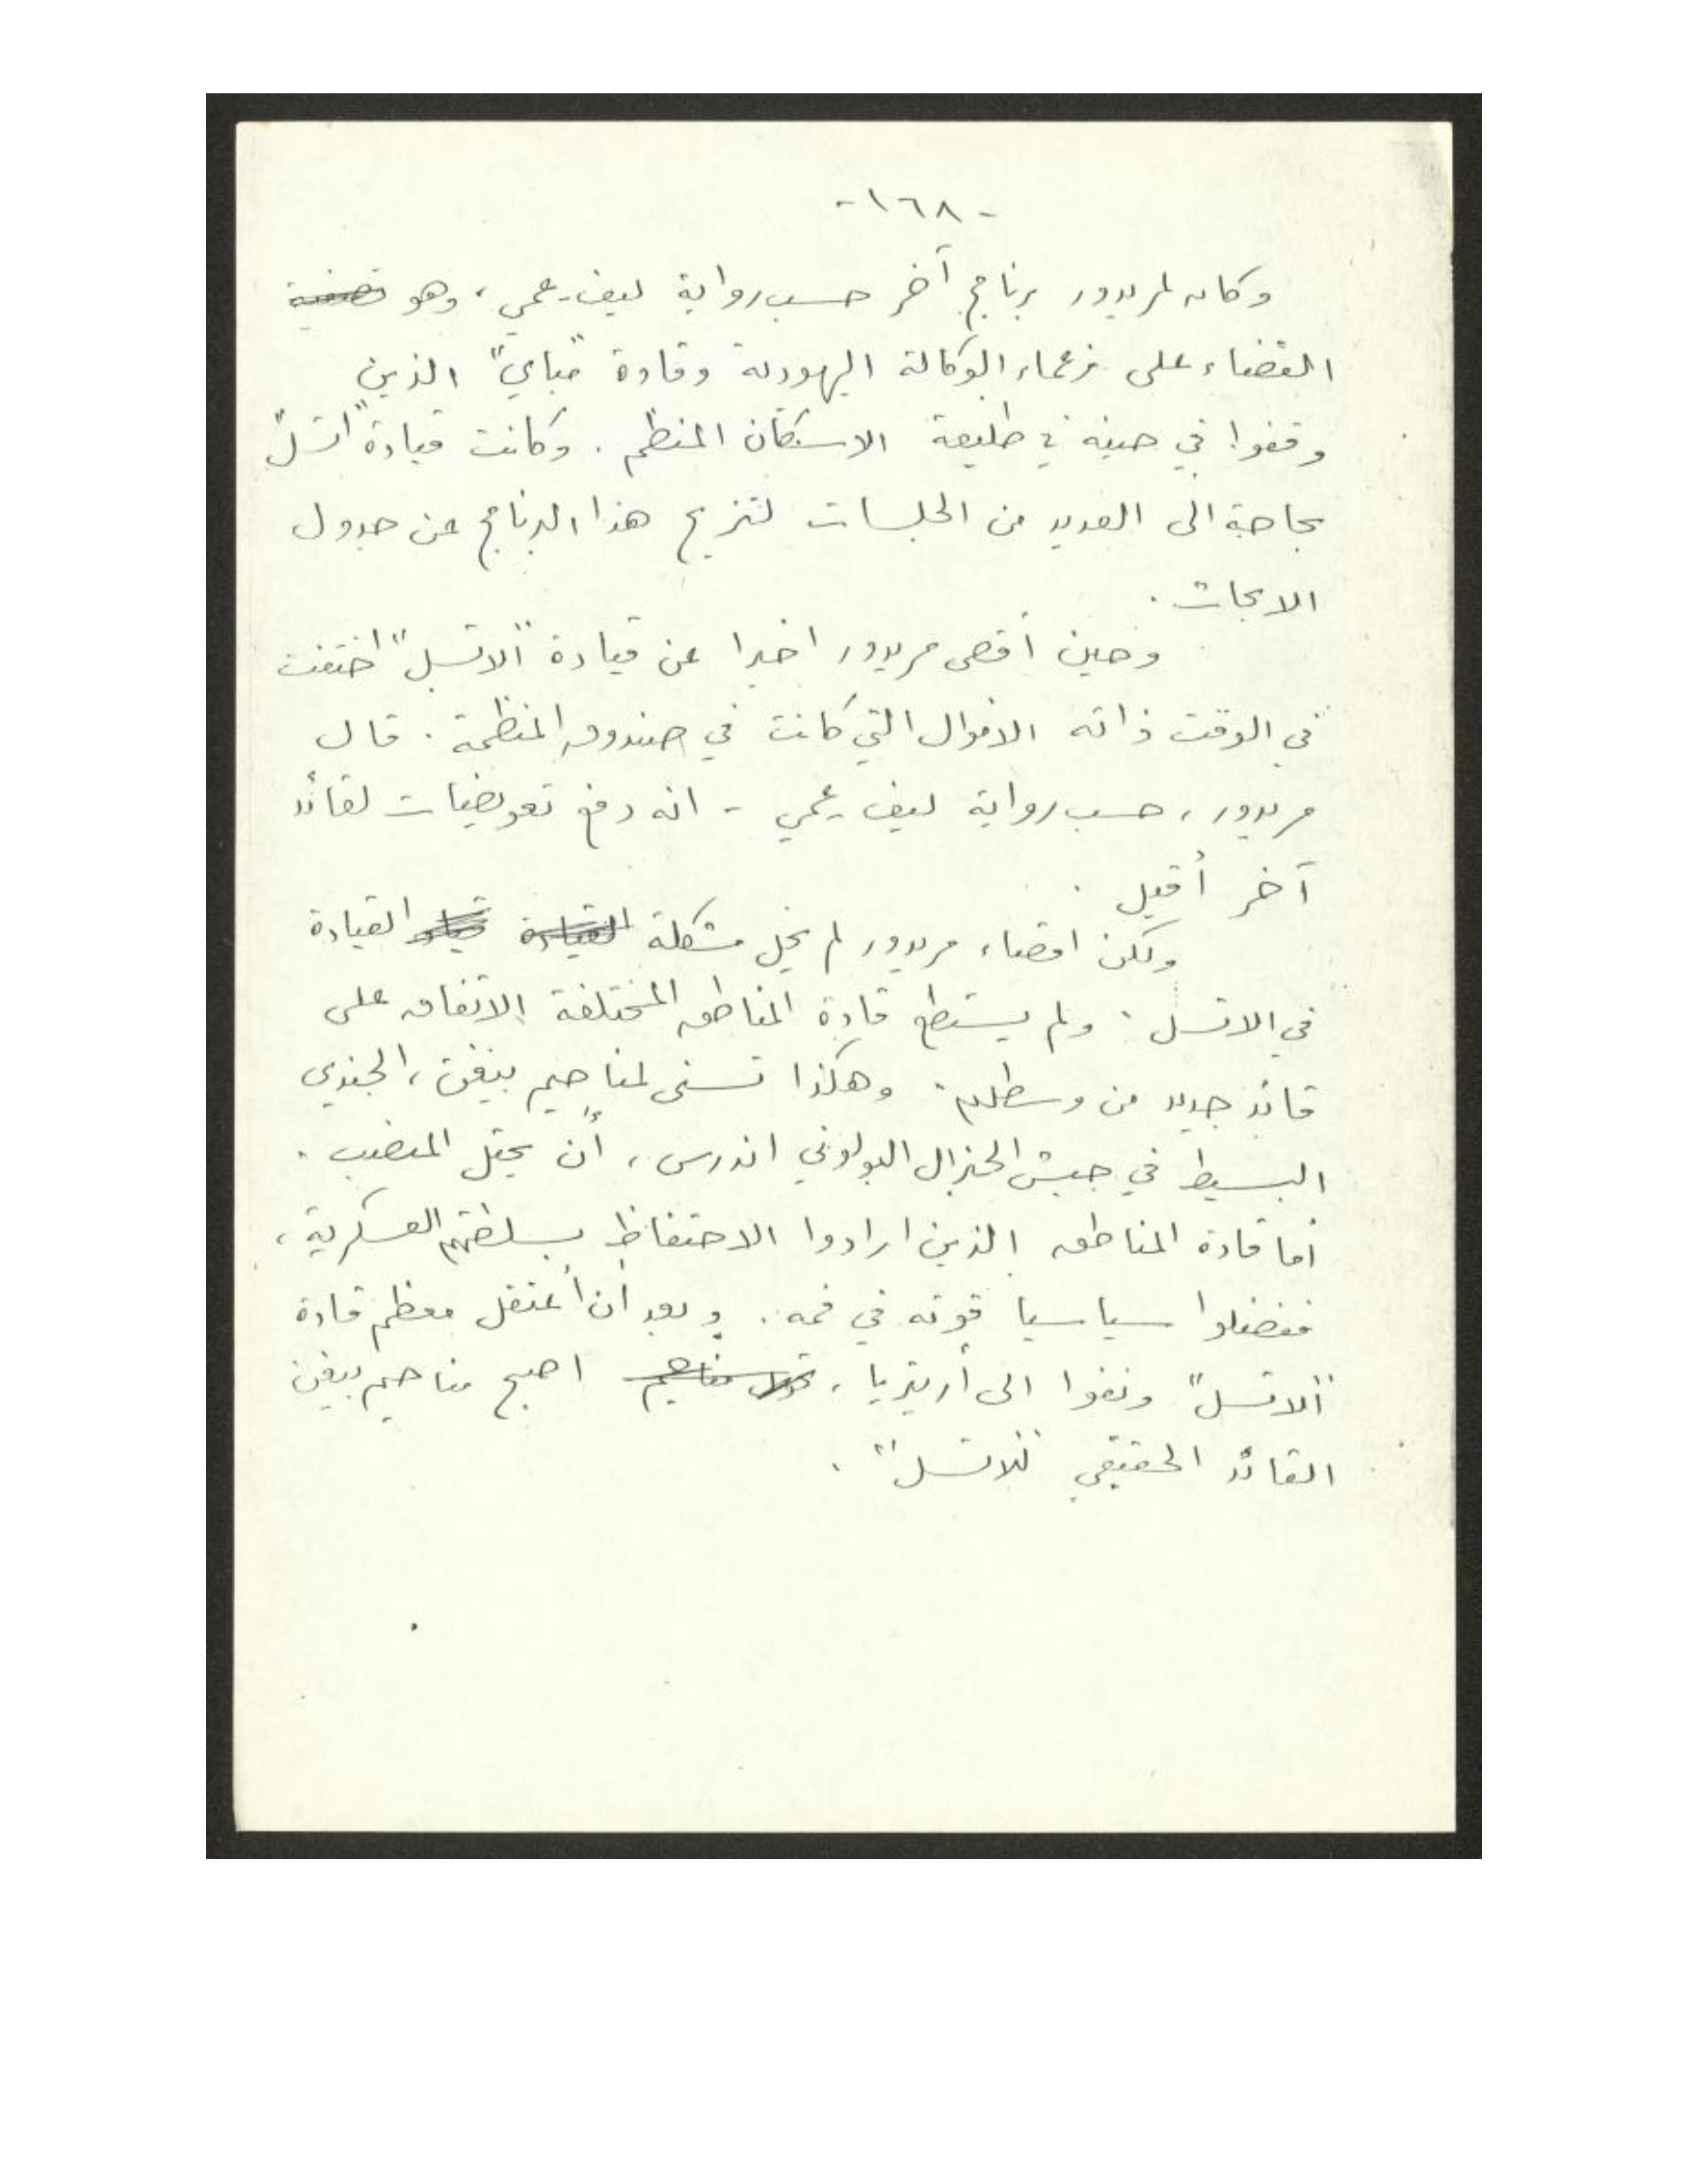 -١٦٨-
وكان لمريدور برنامج آخر حسب رواية ليف-عمي، وهو تصفية
القضاء على زعماء الوكالة اليهودية وقادة "مباي" الذين
وقفوا في حينه في طليعة الاستيطان المنظم. وكانت قيادة "اتسل"
بحاجة الى العديد من الجلسات لتزيح هذا البرنامج عن جدول
الابحاث.
وحين أقصى مريدور اخيرا عن قيادة "الاتسل" اختفت
في الوقت ذاته الاموال التي كانت في صندوق المنظمة. قال
مريدور، حسب رواية ليف عمي - انه دفع تعويضات لقائد
آخر أقيل.
ولكن اقصاء مريدور لم يحل مشكلة القيادة قيادة القيادة
في الاتسل. ولم يستطع قادة المناطق المختلفة الاتفاق على
قائد جديد من وسطهم. وهكذا تسنى لمناحيم بيغن، الجندي
البسيط في جيش الجنرال البولوني اندرس، أن يحتل المنصب.
أما قادة المناطق الذين ارادوا الاحتفاظ بسلطتهم العسكرية،
ففضلوا سياسيا قوته في فمه. وبعد أن أعتقل معظم قادة
"الاتسل" ونفوا الى أريتريا، مناحيم اصبح مناحيم بيغن
القائد الحقيقي "للاتسل".